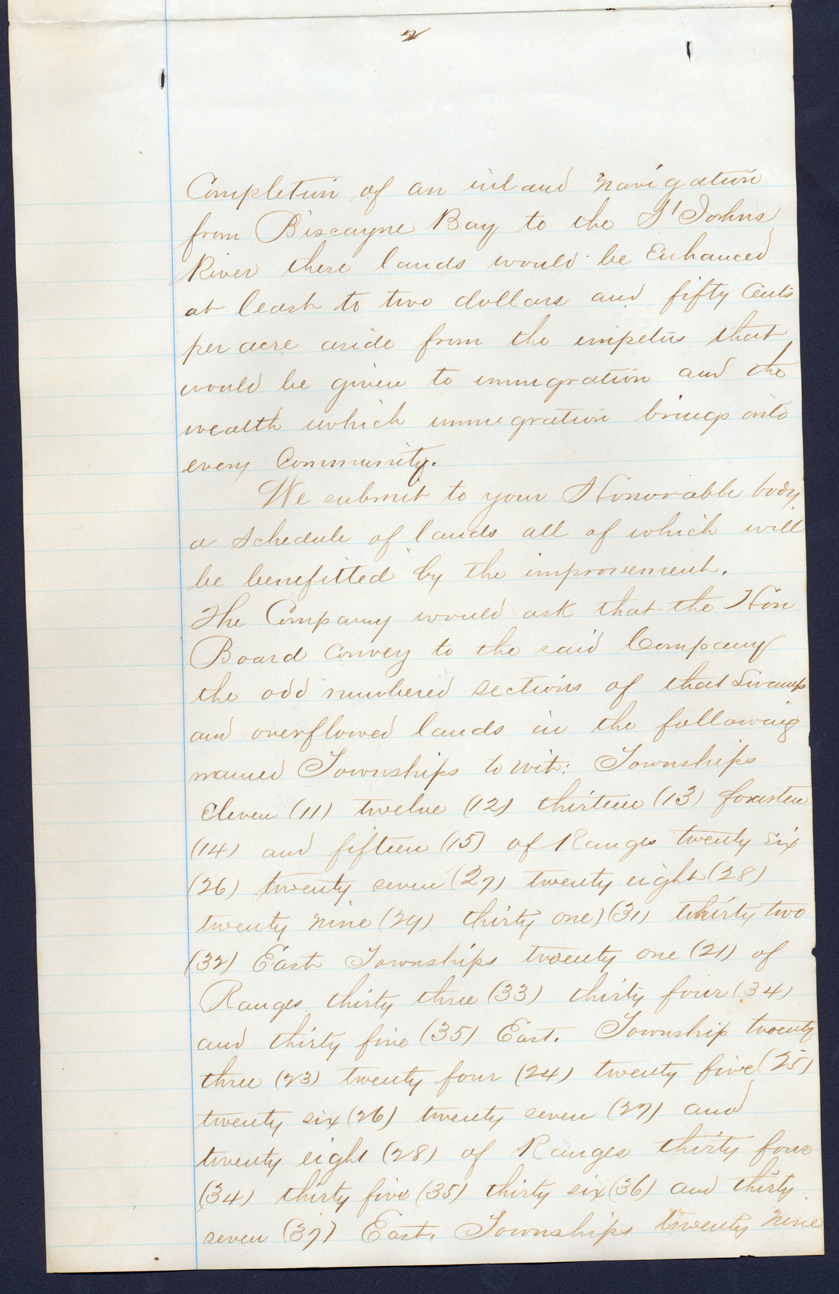 2
Completion of an inland navigation
from Biscayne Bay to the St Johns
River these lands would be Enhanced
at least to two dollars and fifty Cents
per acre aside from the impetus that
would be given to immigration and the
wealth which immigration brings into
every Community.
We submit to your Honorable body
a Schedule of lands all of which will
be benefitted by the improvement.
The Company would ask that the Hon
Board Convey to the said Company
the odd numbered sections of that Swamp
and overflowed lands in the following
named Townships to wit: Townships
Eleven (11) twelve (12) thirteen (13) fourteen
(14) and fifteen (15) of Ranges twenty six
(26) twenty seven (27) twenty eight (28)
twenty nine (29) thirty one) (31) thirty two
(32) East Townships twenty one (21) of
Ranges thirty three (33) thirty four (34)
and thirty five (35) East. Township twenty
three (23) twenty four (24) twenty five (25)
twenty six (26) twenty seven (27) and
twenty eight (28) of Ranges thirty four
(34) thirty five (35) thirty six (36) and thirty
seven (37) East. Townships twenty nine